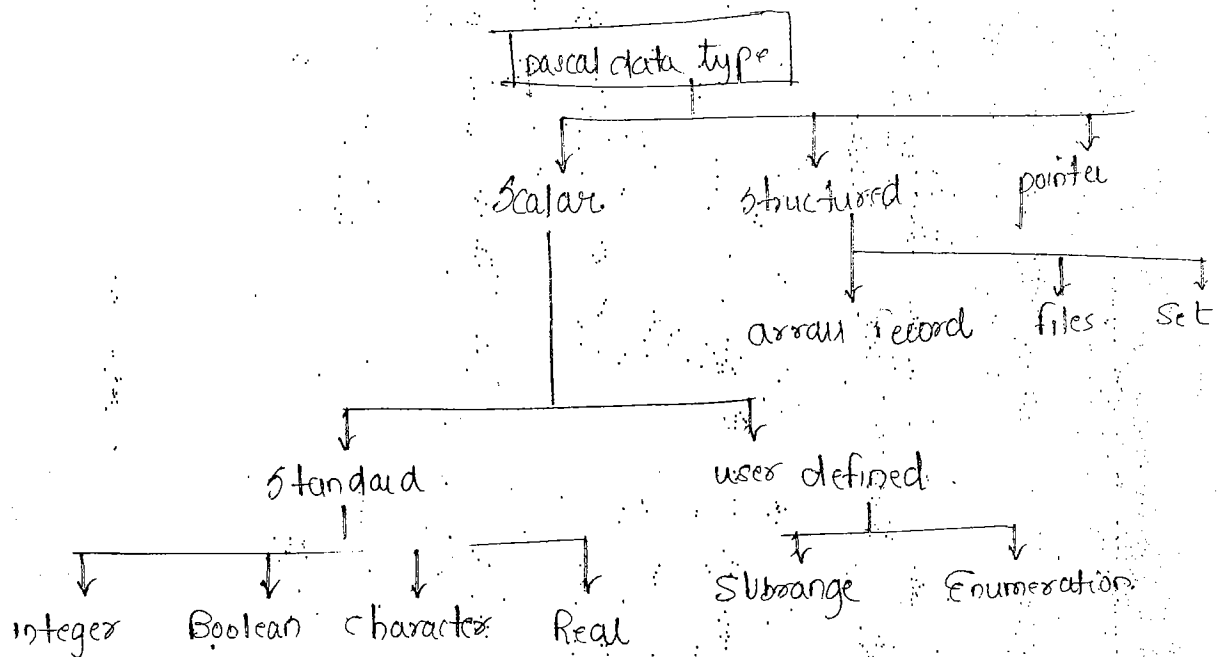 pascal data type
Scalar structured pointer
array record files set
Standard user defined
integer Boolean character Real Subrange Enumeration